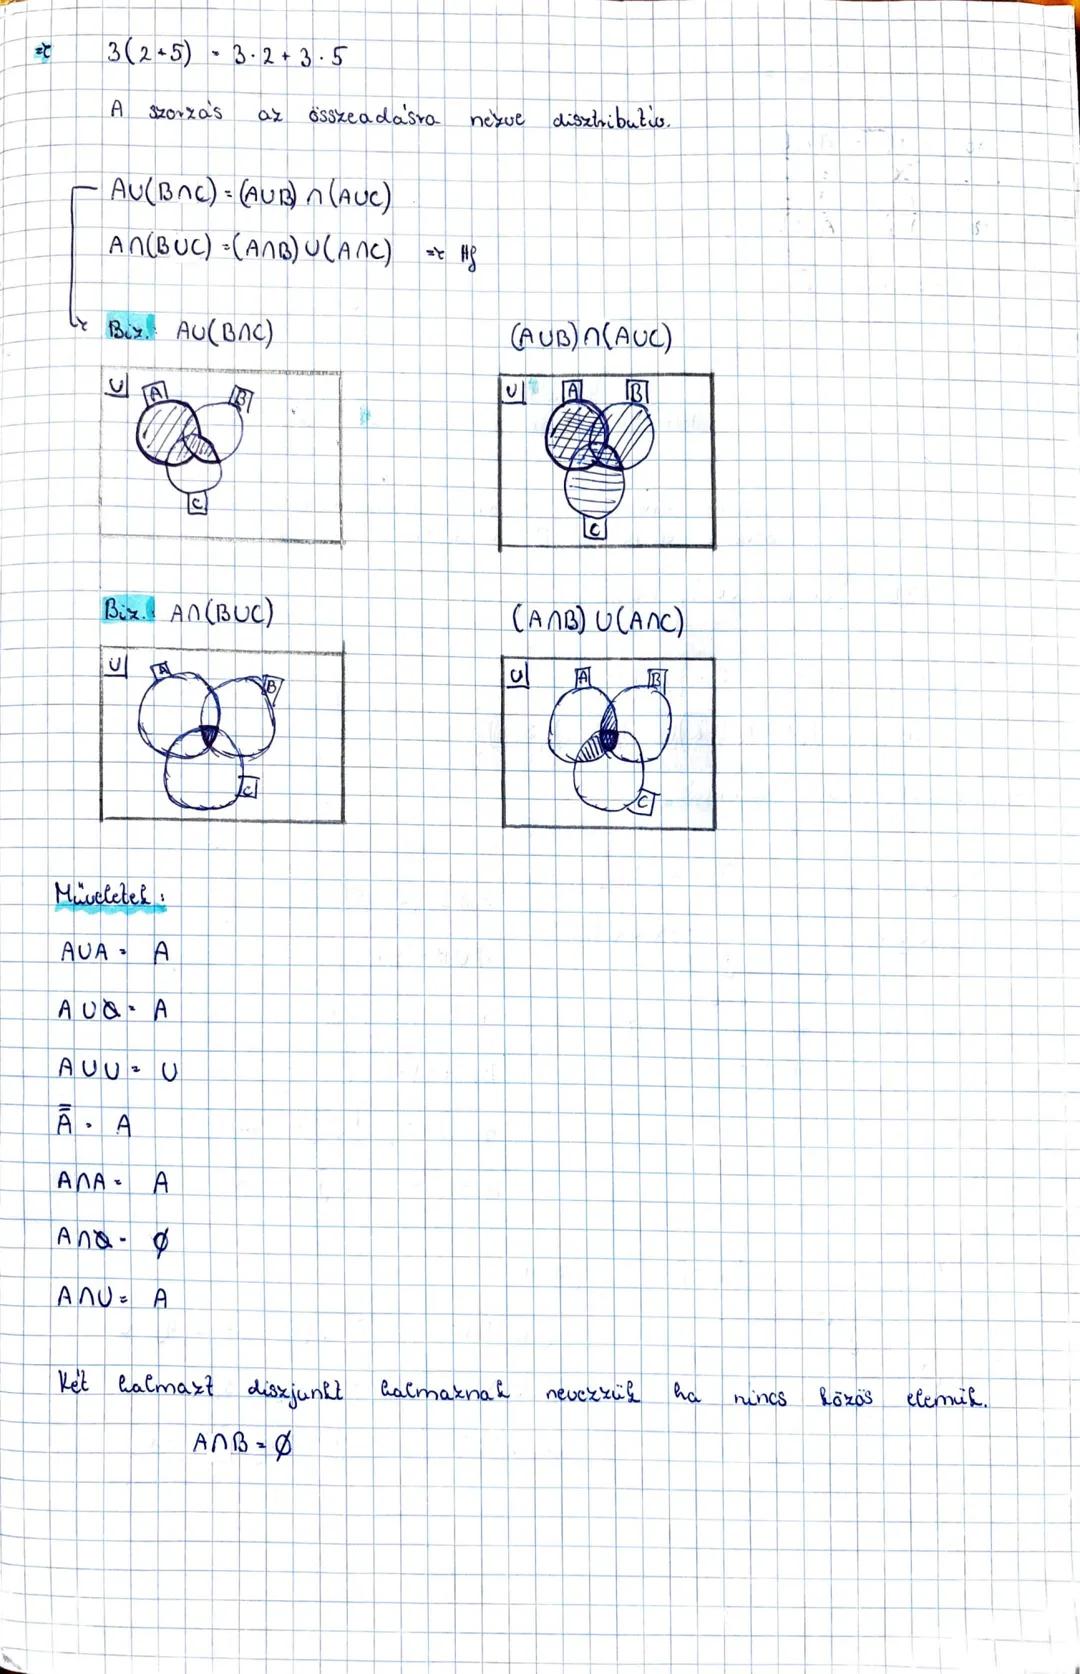 ⇒ 3(2+5) = 3·2+3·5
A szorzás az összeadásra nézve disztributív.
A∪(B∩C)=(A∪B)∩(A∪C)
A∩(B∪C)=(A∩B)∪(A∩C) ⇒ Hf
Biz.: A∪(B∩C) (A∪B)∩(A∪C)
U A B C
U A B C
Biz.: A∩(B∪C) (A∩B)∪(A∩C)
U A B C
U A B C
Műveletek:
A∪A= A
A∪∅= A
A∪U= U
A̿= A
A∩A= A
A∩∅= ∅
A∩U= A
Két halmazt diszjunkt halmaznak nevezzük ha nincs közös elemük.
A∩B=∅